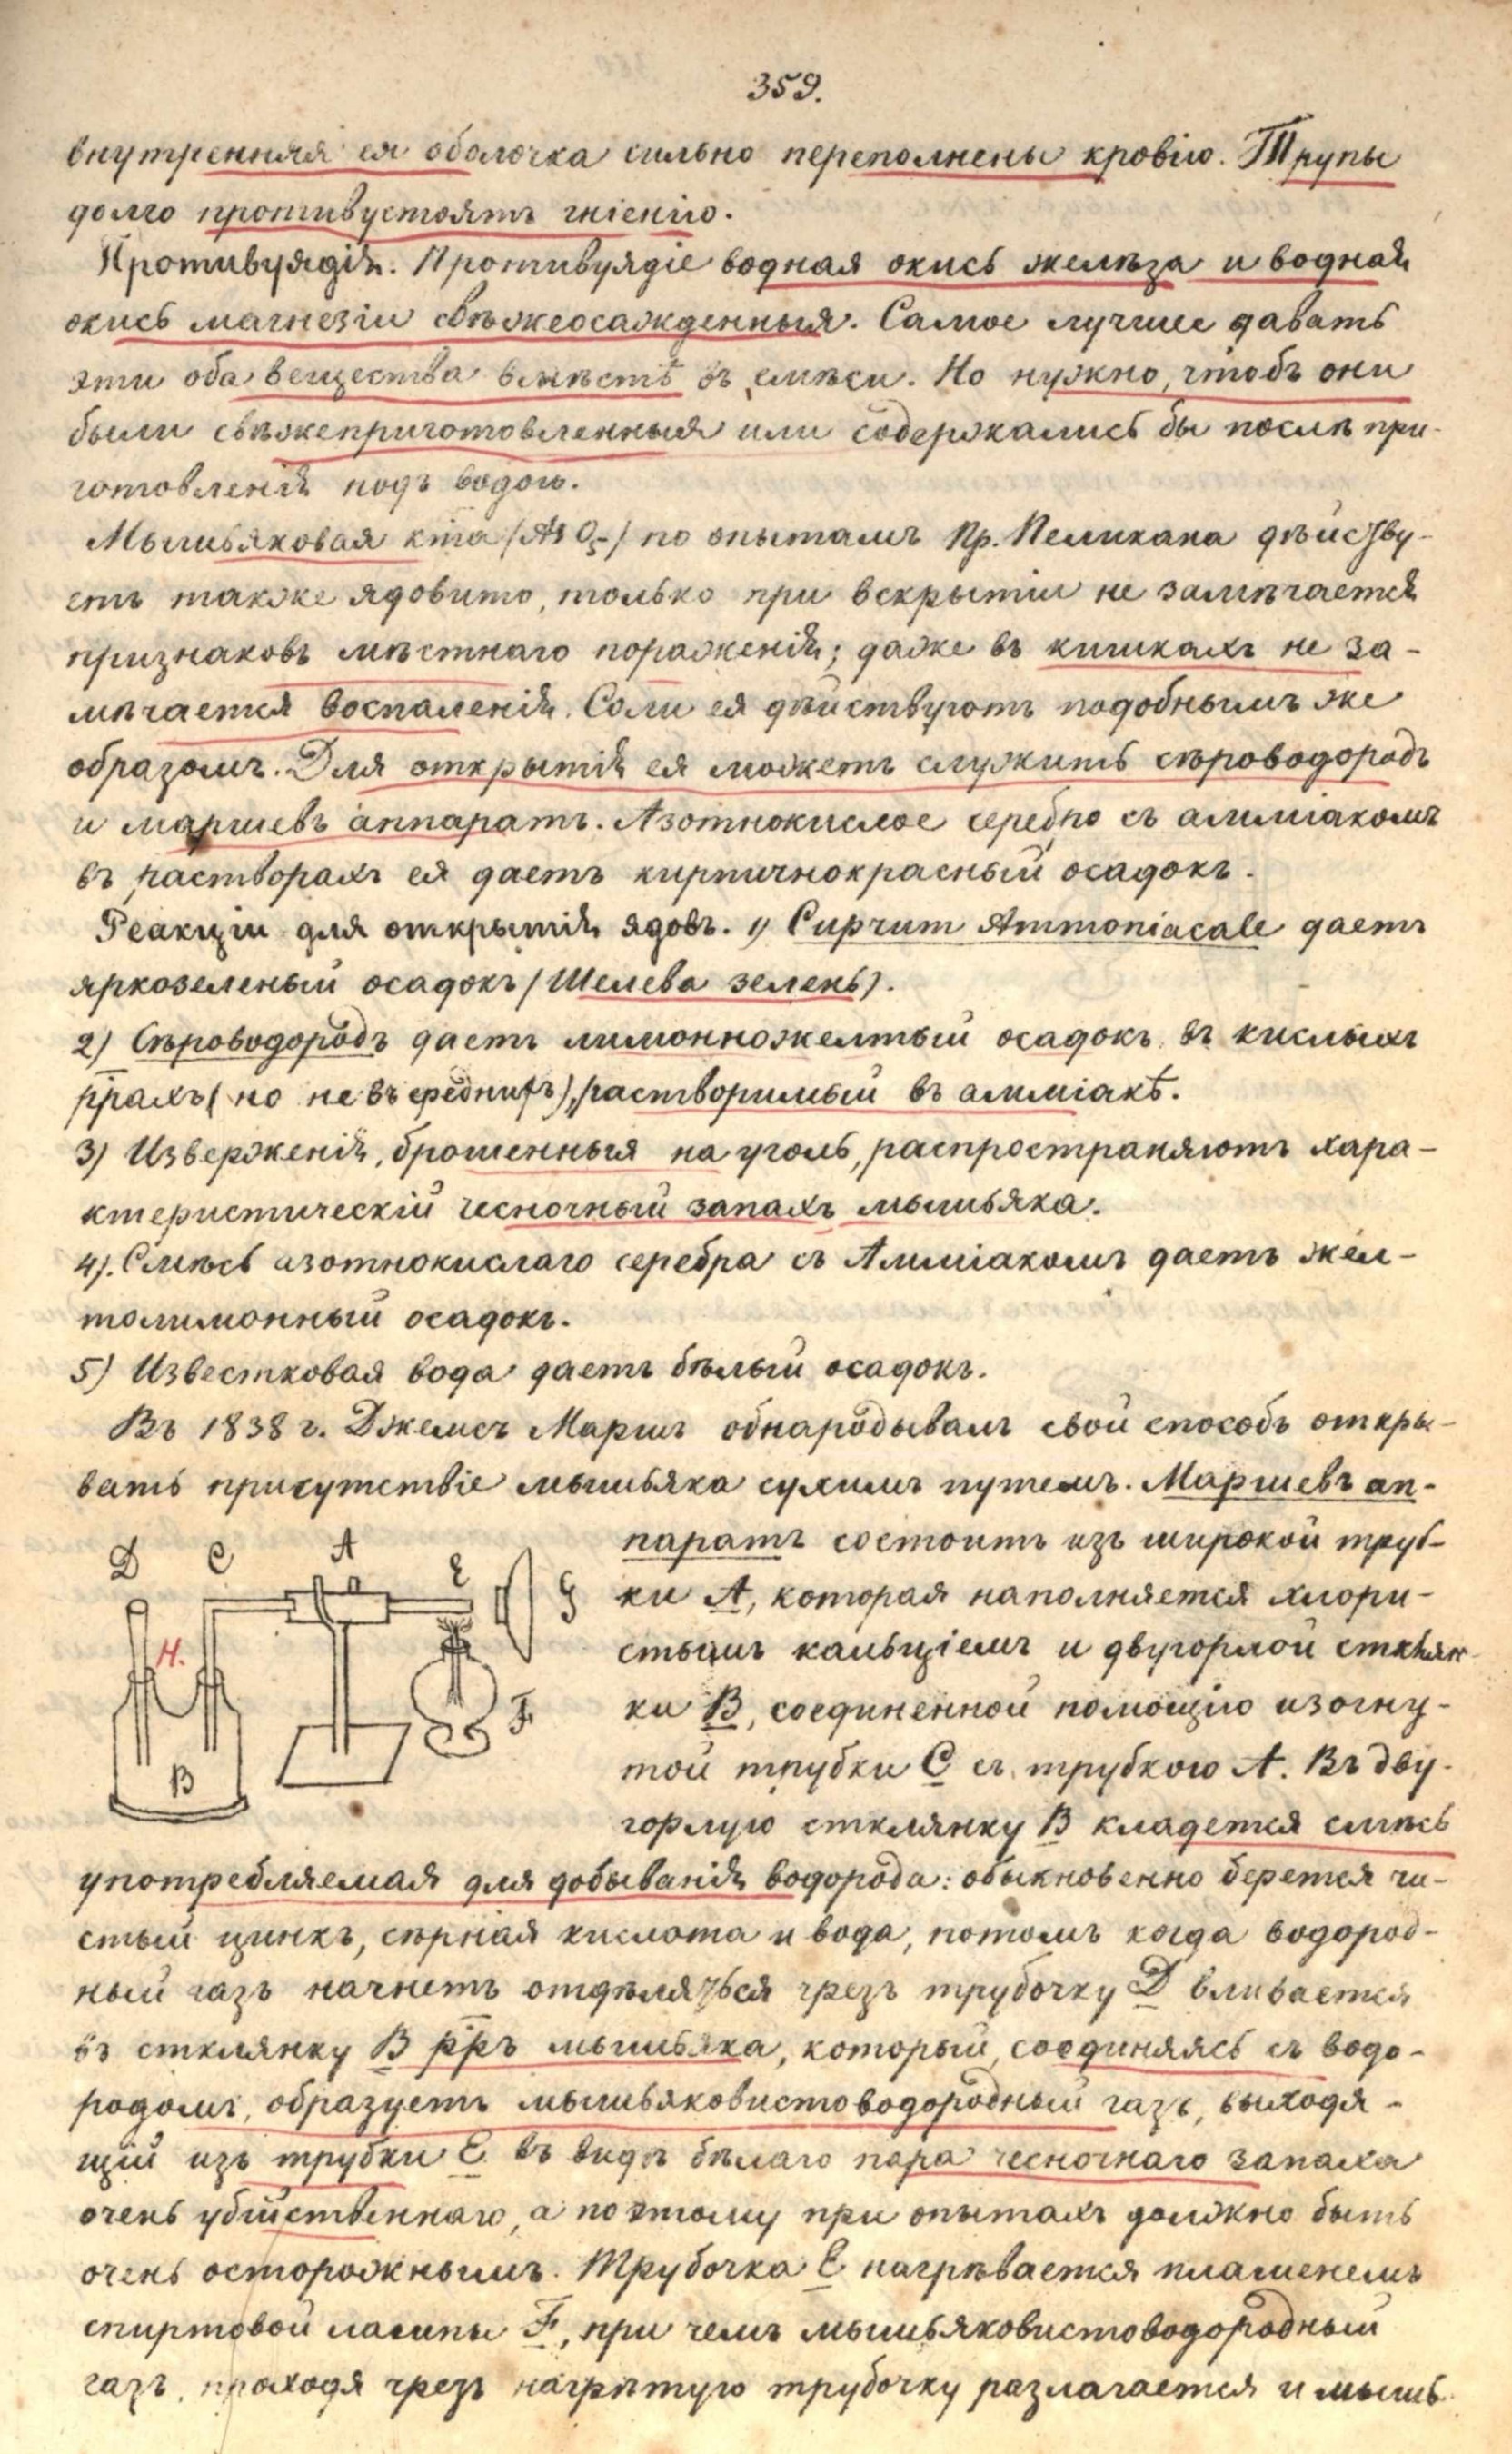 359.
внутренняя ея оболочка сильно переполнены кровiю. Трупы
долго противустоятъ гнiенiю.
Противуядiя. Противуядiе водная окись желѣза и водная
окись магнезiи свѣжеосажденныя. Самое лучшее давать
эти оба вещества вмѣстѣ въ смѣси. Но нужно, чтобъ они
были свѣжеприготовленныя или содержались бы послѣ при-
готовленiя подъ водою.
Мышьяковая кта (As O5) по опытамъ Пр. Пеликана дѣйству-
етъ также ядовито, только при вскрытiи не замѣчается
признаковъ мѣстнаго пораженiя; даже въ кишкахъ не за-
мѣчается воспаленiя. Соли ея дѣйствуютъ подобнымъ же
образомъ. Для открытiя ея можетъ служить сѣроводородъ
и маршевъ аппаратъ. Азотнокислое серебро съ аммiакомъ
въ растворахъ ея даетъ кирпичнокрасный осадокъ.
Реакцiи для открытiя ядовъ. 1) Cuprum Ammoniacale даетъ
яркозеленый осадокъ (Шелева зелень).
2) Сѣроводородъ даетъ лимонножелтый осадокъ въ кислыхъ
ррахъ (но не въ среднихъ), растворимый въ аммiакѣ.
3) Изверженiя, брошенныя на уголь, распространяютъ хара-
ктеристическiй чесночный запахъ мышьяка.
4). Смѣсь азотнокислаго серебра съ Аммiакомъ даетъ жел-
толимонный осадокъ.
5) Известковая вода даетъ бѣлый осадокъ.
Въ 1838 г. Джемсъ Маршъ обнародывалъ свой способъ откры-
вать присутствiе мышьяка сухимъ путемъ. Маршевъ ап-
паратъ состоитъ изъ широкой труб-
ки A, которая наполняется хлори-
стымъ кальцiемъ и двугорлой стклян-
ки B, соединенной помощiю изогну-
той трубки C съ трубкою A. Въ дву-
горлую стклянку B кладется смѣсь
D C A E G
H.
F
B
употребляемая для добыванiя водорода: обыкновенно берется чи-
стый цинкъ, сѣрная кислота и вода, потомъ когда водород-
ный газъ начнетъ отдѣляться чрезъ трубочку D вливается
въ стклянку B рръ мышьяка, который, соединяясь съ водо-
родомъ, образуетъ мышьяковистоводородный газъ, выходя-
щiй изъ трубки E въ видѣ бѣлаго пара чесночнаго запаха
очень убiйственнаго, а поэтому при опытахъ должно быть
очень осторожнымъ. Трубочка E нагрѣвается пламенемъ
спиртовой лампы F, при чемъ мышьяковистоводородный
газъ, проходя чрезъ нагрѣтую трубочку разлагается и мышь